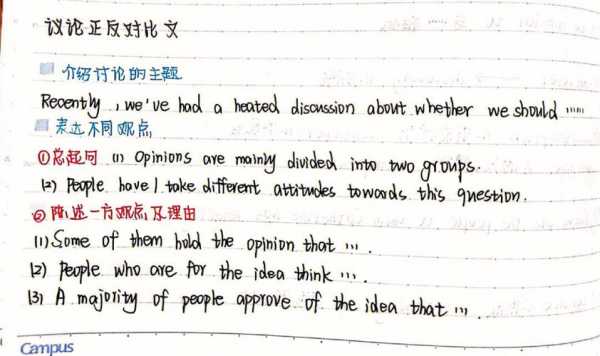 议论正反对比文
介绍讨论的主题
Recently, we've had a heated discussion about whether we should ......
表达不同观点
①总起句 (1) Opinions are mainly divided into two groups.
(2) People have / take different attitudes towards this question.
② 陈述一方观点及理由
(1) Some of them hold the opinion that ... .
(2) People who are for the idea think ... .
(3) A majority of people approve of the idea that ... .
Campus